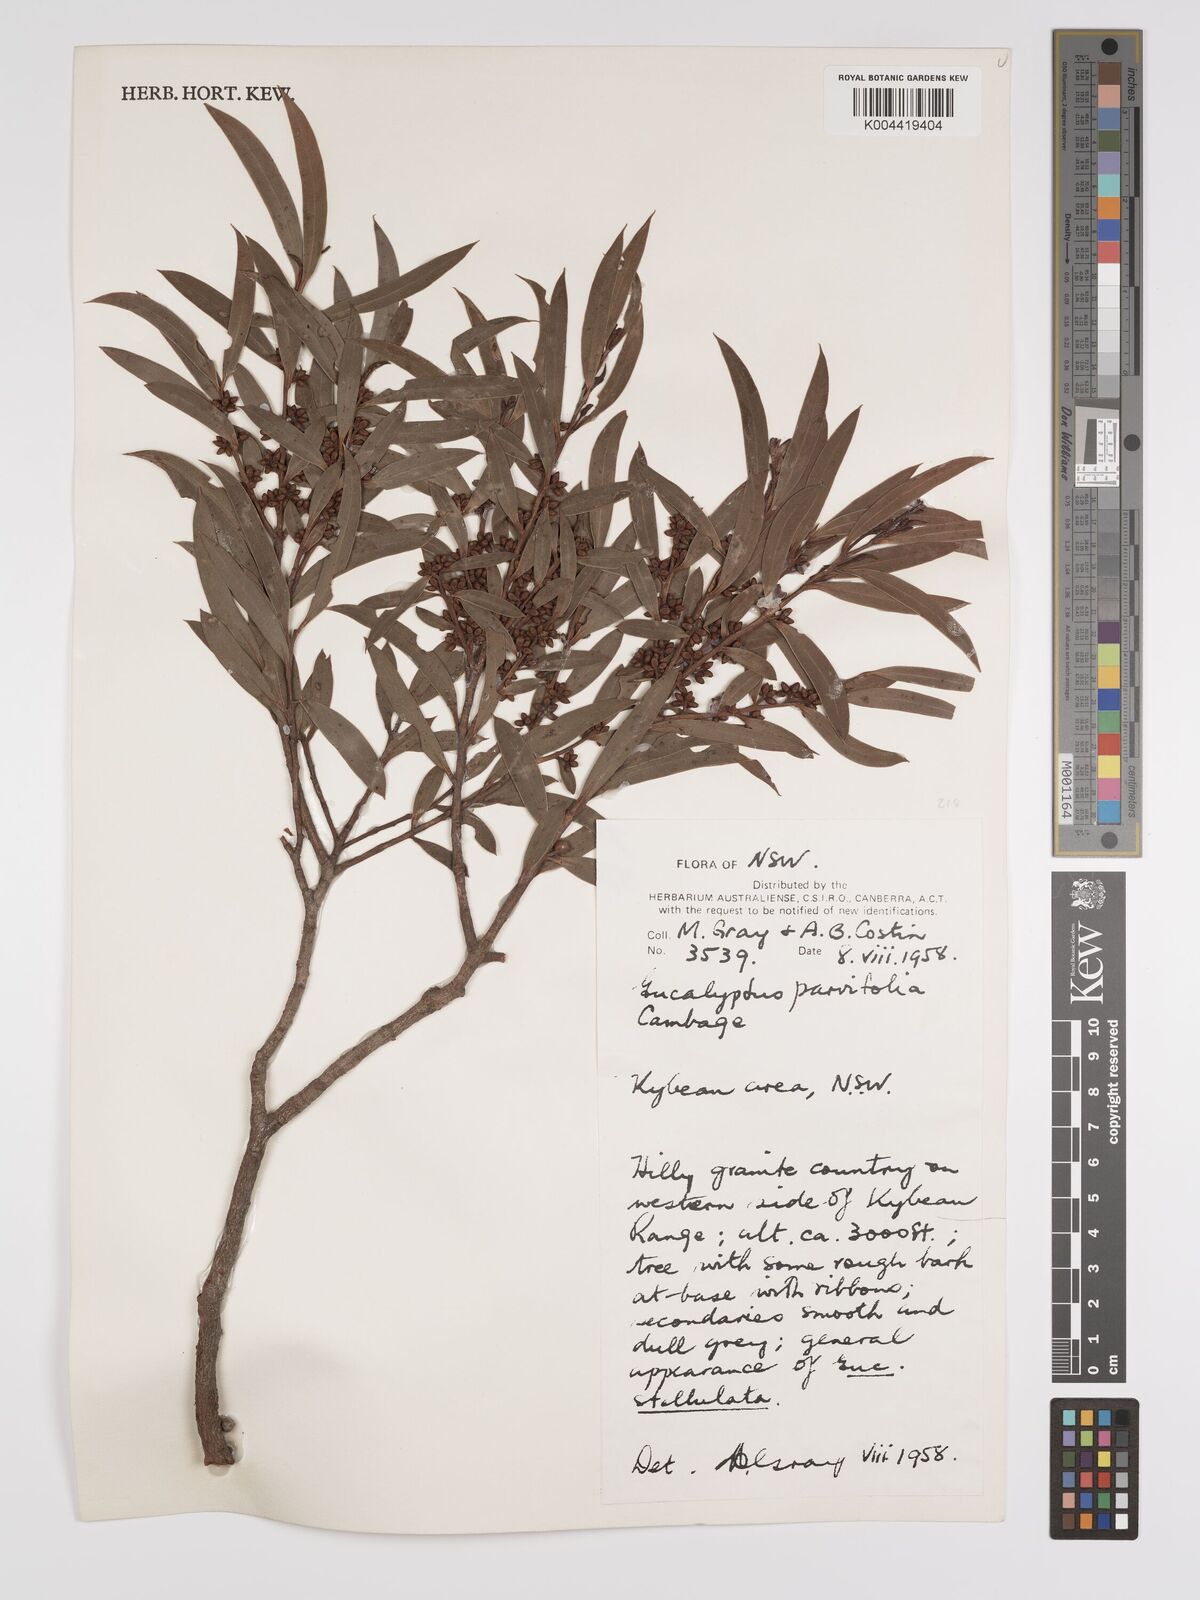 HERB. HORT. KEW.
ROYAL BOTANIC GARDENS KEW
K004419404
FLORA OF NSW.
Distributed by the
HERBARIUM AUSTRALIENSE, C.S.I.R.O., CANBERRA, A.C.T.
with the request to be notified of new identifications.
Coll. M. Gray & A. B. Costin
No. 3539. Date 8.viii.1958.
Eucalyptus parvifolia
Cambage
Kybean area, N.S.W.
Hilly granite country on
western side of Kybean
Range; alt. ca. 3000ft.;
tree with some rough bark
at base with ribbons;
secondaries smooth and
dull grey; general
appearance of Euc.
stellulata.
Det. M. Gray viii 1958.
inches
centimetres
Density
Don Williams
M001164
Kew
Royal Botanic Gardens
copyright reserved
0 1 2 3 4 5 6 7 8 9 10
cm